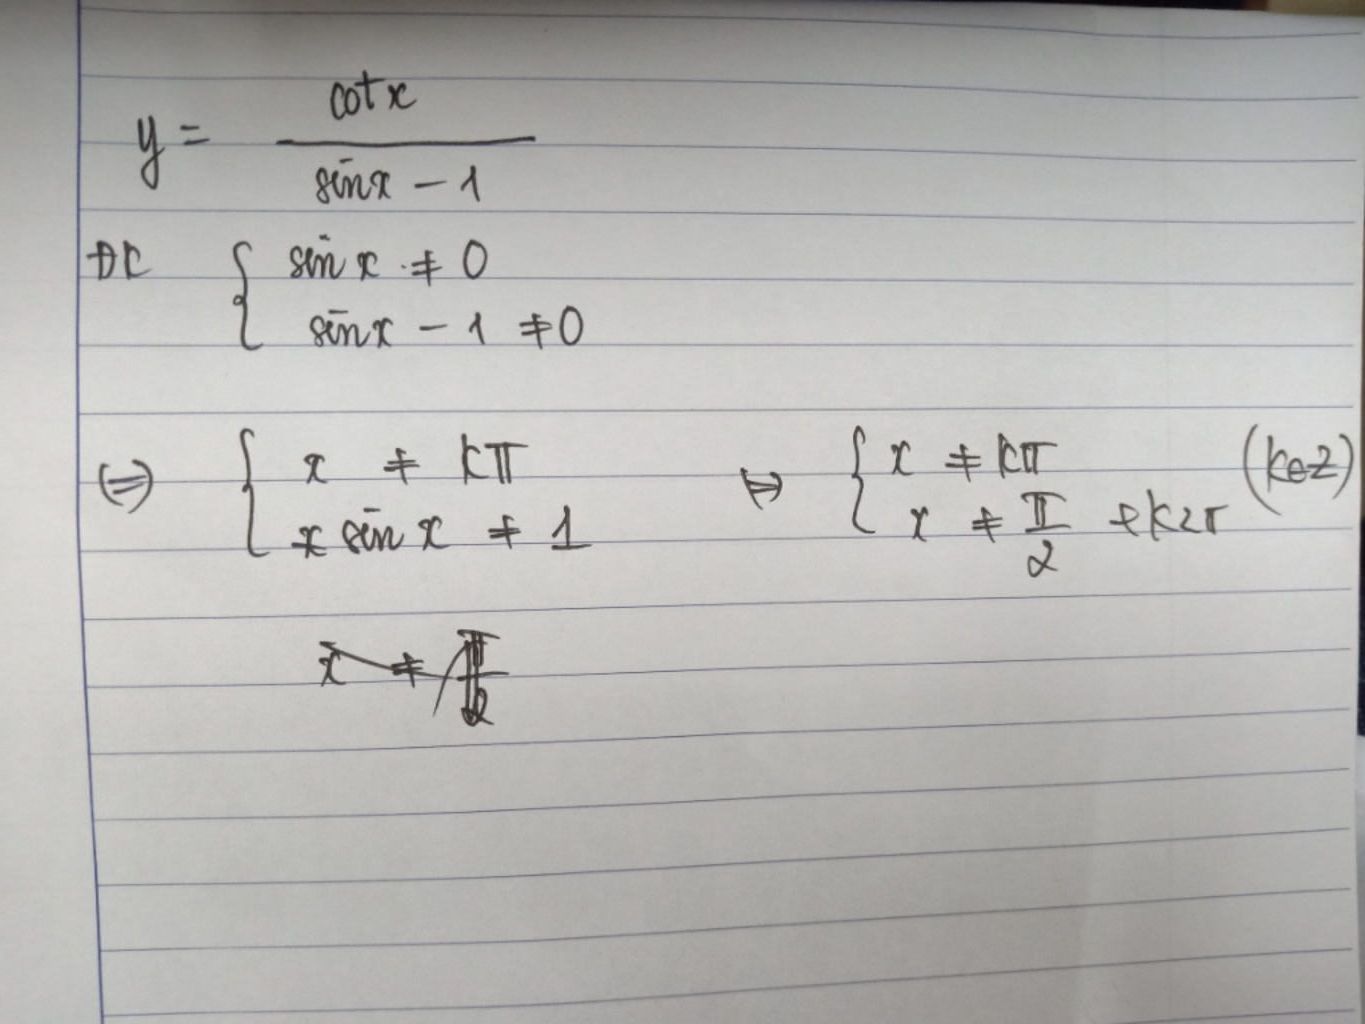 y = cot x / sin x - 1
ĐK { sin x ≠ 0
sin x - 1 ≠ 0
(=) { x ≠ kπ
x sin x ≠ 1
⇔ { x ≠ kπ
x ≠ π/2 + k2π (k∈Z)
x ≠ π/2